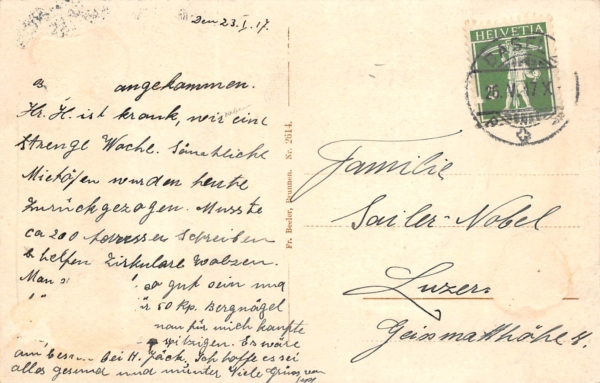 Den 23. V. 17.
angekommen.
Hr. H. ist krank, wir eine
strenge Woche. Sämtliche
Mietöfen wurden heute
zurückgezogen. Musste
ca 200 Adressen schreiben
& helfen Zirkulare walzen.
Man
so gut sein und
für 50 Rp. Bergnägel
man für mich kaufte
witzigen. Es wäre
am besten bei H. Jäck. Ich hoffe es sei
alles gesund und munter Viele Grüsse von
Fr. Beeler, Brunnen. Nr. 2614.
HELVETIA
Familie
Sailer-Nobel
Luzern
Geissmatthöhe